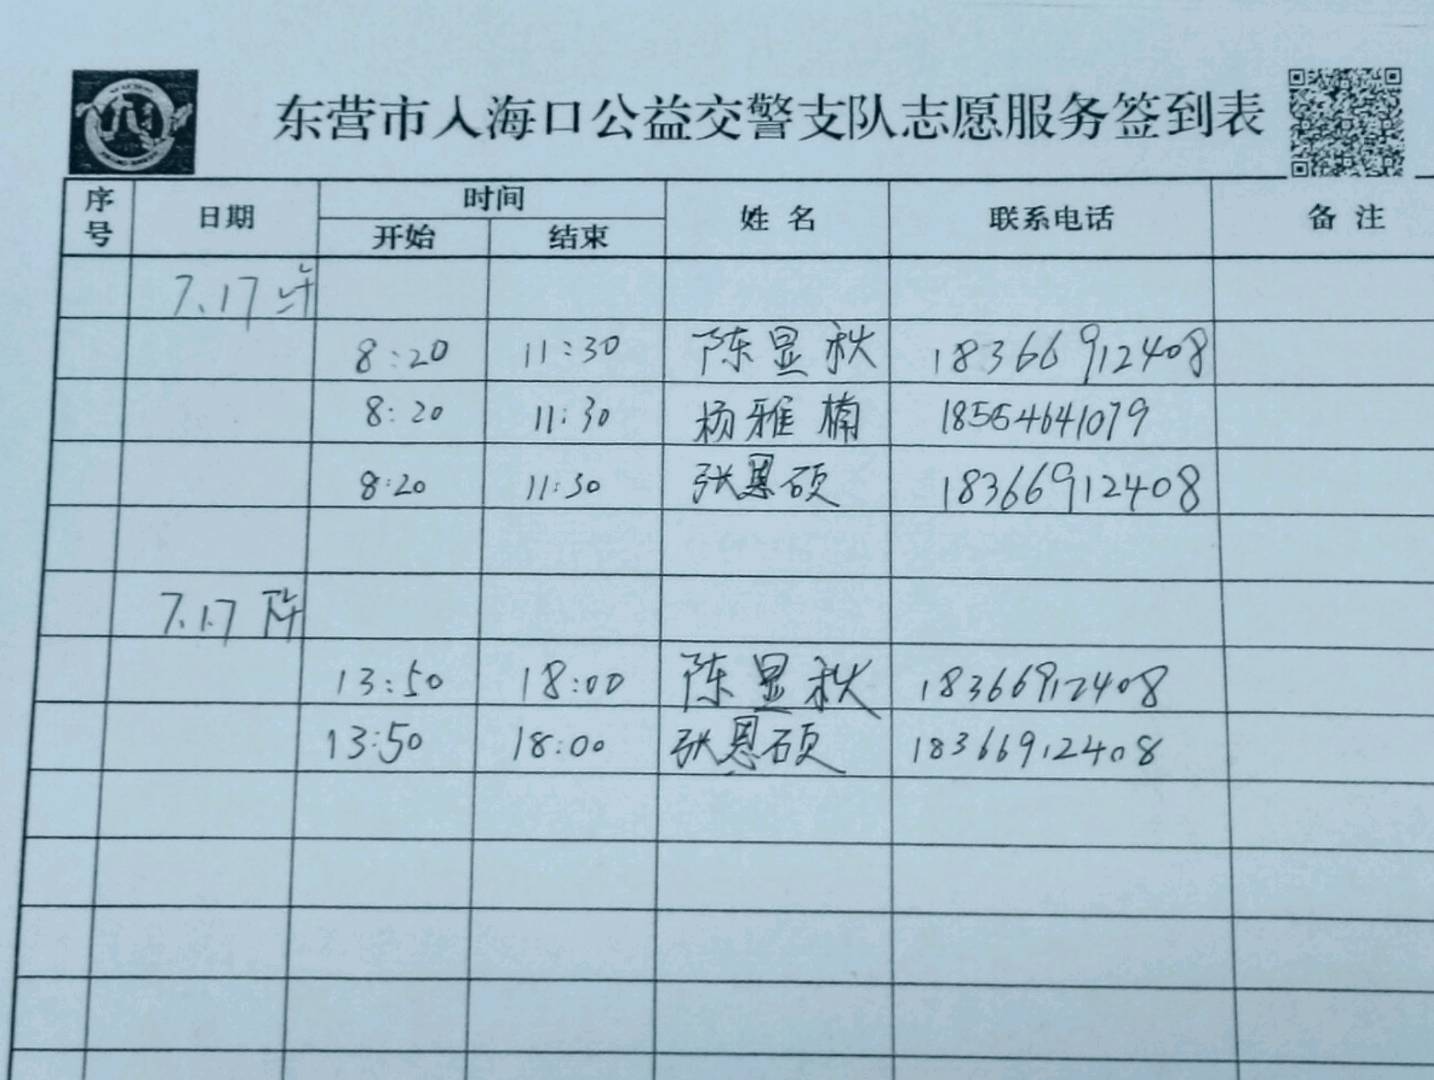 东营市入海口公益交警支队志愿服务签到表
序号 日期 时间 姓名 联系电话 备注
开始 结束
7.17 上午
8:20 11:30 陈显秋 18366912408
8:20 11:30 杨雅楠 18564641079
8:20 11:30 张恩硕 18366912408
7.17 下午
13:50 18:00 陈显秋 18366912408
13:50 18:00 张恩硕 18366912408